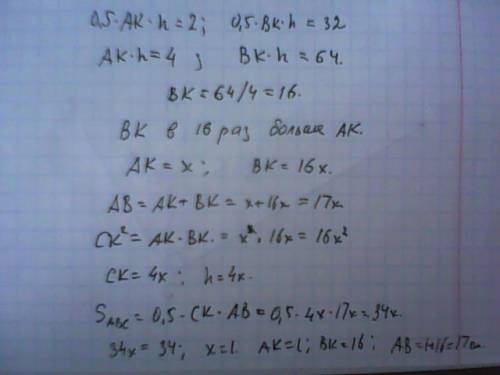 0,5·AK·h=2; 0,5·BK·h=32
AK·h=4; BK·h=64.
BK=64/4=16.
BK в 16 раз больше AK.
AK=x; BK=16x.
AB=AK+BK=x+16x=17x
CK²=AK·BK=x·16x=16x²
CK=4x; h=4x.
S_ABC=0,5·CK·AB=0,5·4x·17x=34x.
34x=34; x=1. AK=1; BK=16; AB=1+16=17см.